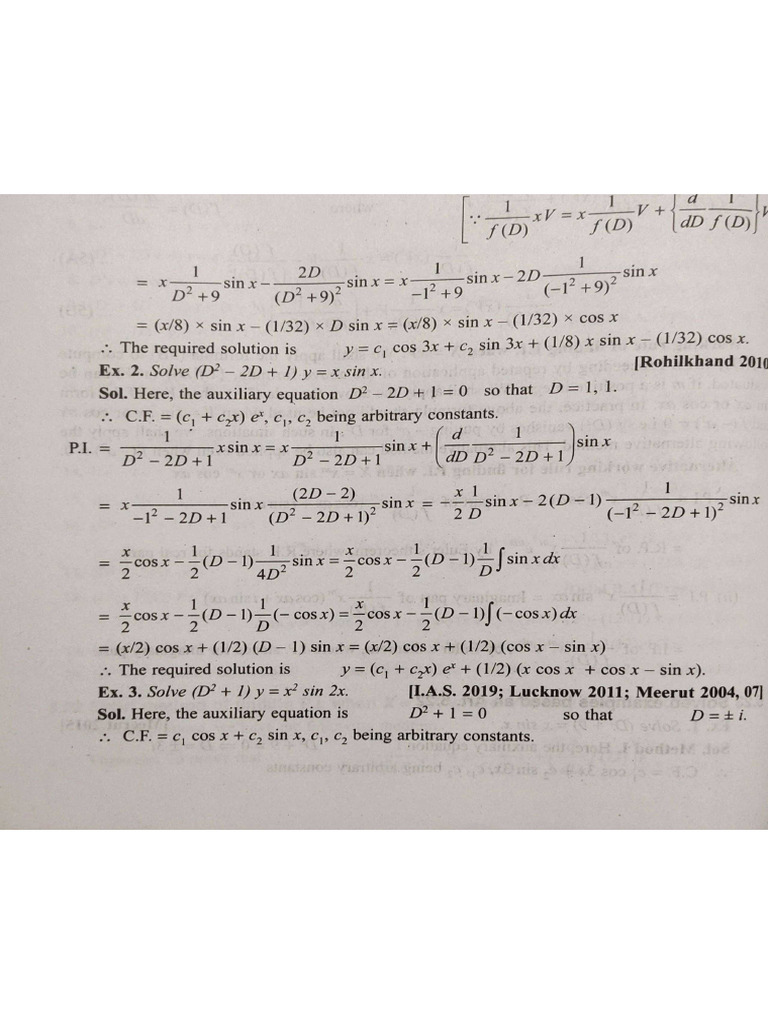 [∵ 1/f(D) xV = x 1/f(D) V + {d/dD 1/f(D)} V
= x 1/(D² + 9) sin x − 2D/(D² + 9)² sin x = x 1/(−1² + 9) sin x − 2D 1/(−1² + 9)² sin x
= (x/8) × sin x – (1/32) × D sin x = (x/8) × sin x – (1/32) × cos x
∴ The required solution is y = c₁ cos 3x + c₂ sin 3x + (1/8) x sin x – (1/32) cos x.
Ex. 2. Solve (D² – 2D + 1) y = x sin x. [Rohilkhand 2010
Sol. Here, the auxiliary equation D² – 2D + 1 = 0 so that D = 1, 1.
∴ C.F. = (c₁ + c₂x) eˣ, c₁, c₂ being arbitrary constants.
P.I. = 1/(D² − 2D + 1) x sin x = x 1/(D² − 2D + 1) sin x + (d/dD 1/(D² − 2D + 1)) sin x
= x 1/(−1² − 2D + 1) sin x (2D − 2)/(D² − 2D + 1)² sin x = − x/2 1/D sin x − 2(D − 1) 1/(−1² − 2D + 1)² sin x
= x/2 cos x − 1/2 (D − 1) 1/4D² sin x = x/2 cos x − 1/2 (D − 1) 1/D ∫ sin x dx
= x/2 cos x − 1/2 (D − 1) 1/D (− cos x) = x/2 cos x − 1/2 (D − 1) ∫ (− cos x) dx
= (x/2) cos x + (1/2) (D – 1) sin x = (x/2) cos x + (1/2) (cos x – sin x)
∴ The required solution is y = (c₁ + c₂x) eˣ + (1/2) (x cos x + cos x – sin x).
Ex. 3. Solve (D² + 1) y = x² sin 2x. [I.A.S. 2019; Lucknow 2011; Meerut 2004, 07]
Sol. Here, the auxiliary equation is D² + 1 = 0 so that D = ± i.
∴ C.F. = c₁ cos x + c₂ sin x, c₁, c₂ being arbitrary constants.